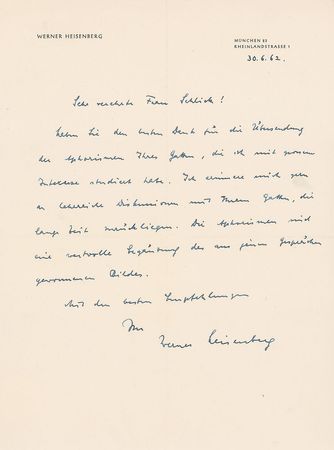 WERNER HEISENBERG
MÜNCHEN 23
RHEINLANDSTRASSE 1
30.6.62.
Sehr verehrte Frau Schlick!
haben Sie den besten Dank für die Übersendung
der Aphorismen Ihres Gatten, die ich mit grossem
Interesse studiert habe. Ich erinnere mich gern
an lehrreiche Diskussionen mit Ihrem Gatten, die
lange Zeit zurückliegen. Die Aphorismen sind
eine wertvolle Ergänzung des aus jenen Gesprächen
gewonnenen Bildes.
Mit den besten Empfehlungen
Ihr
Werner Heisenberg